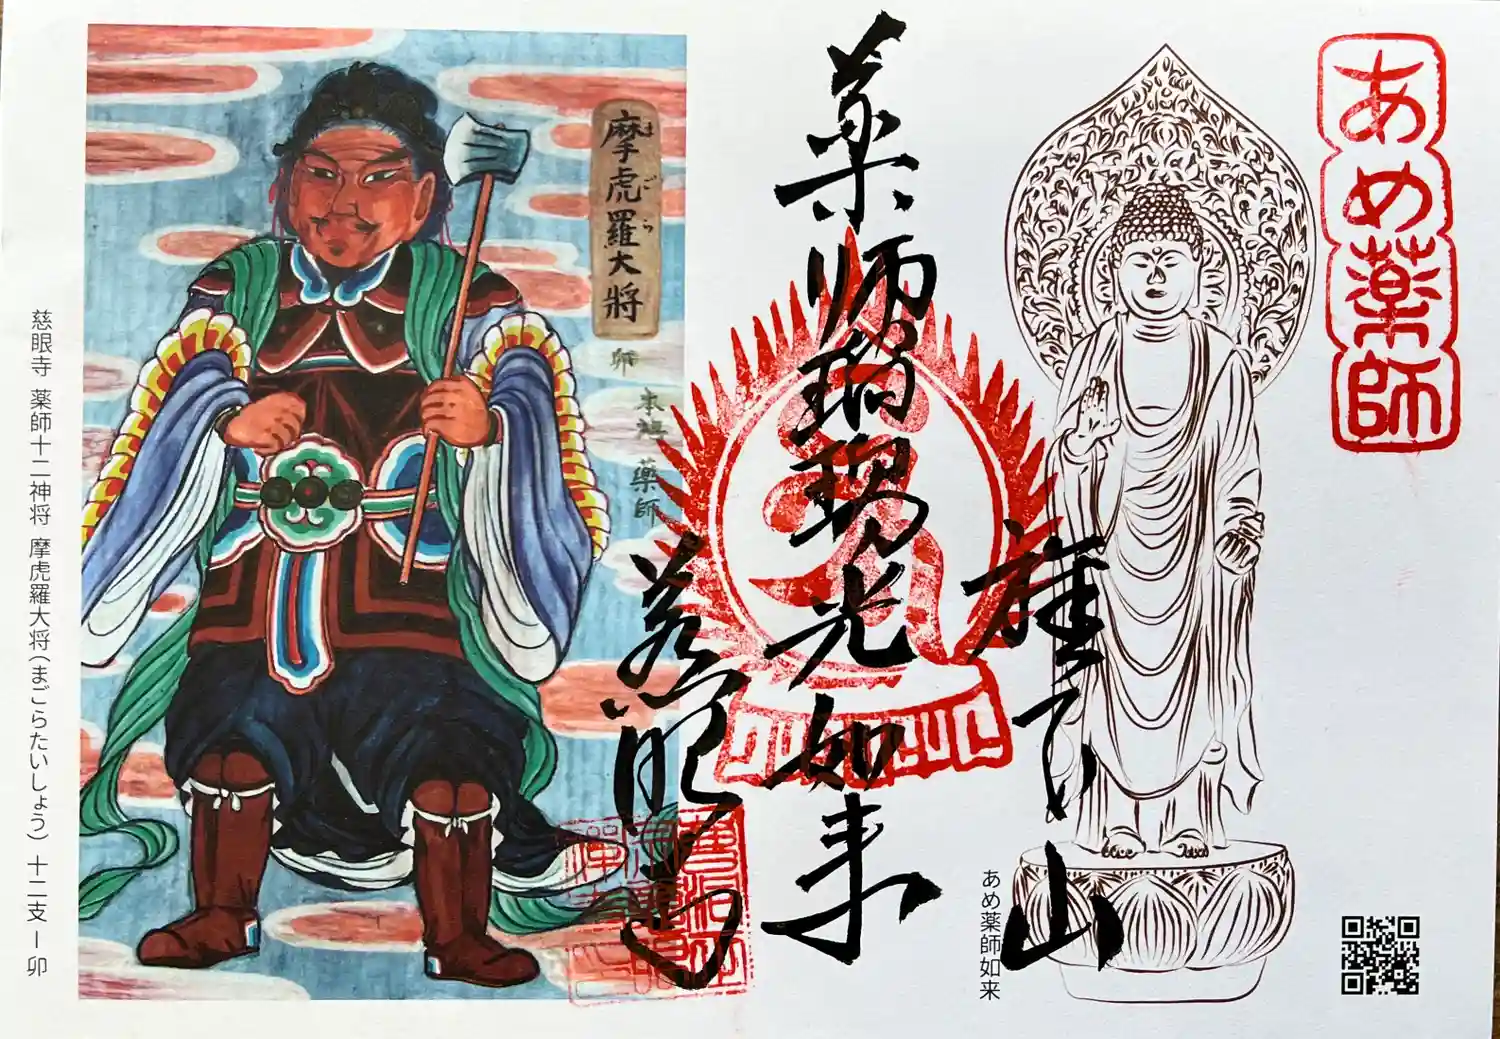 あめ薬師
薬師瑠璃光如来
慈眼寺
あめ薬師如来
摩虎羅大将
まごら
卯
本地 薬師
慈眼寺 薬師十二神将 摩虎羅大将（まごらたいしょう） 十二支ー卯